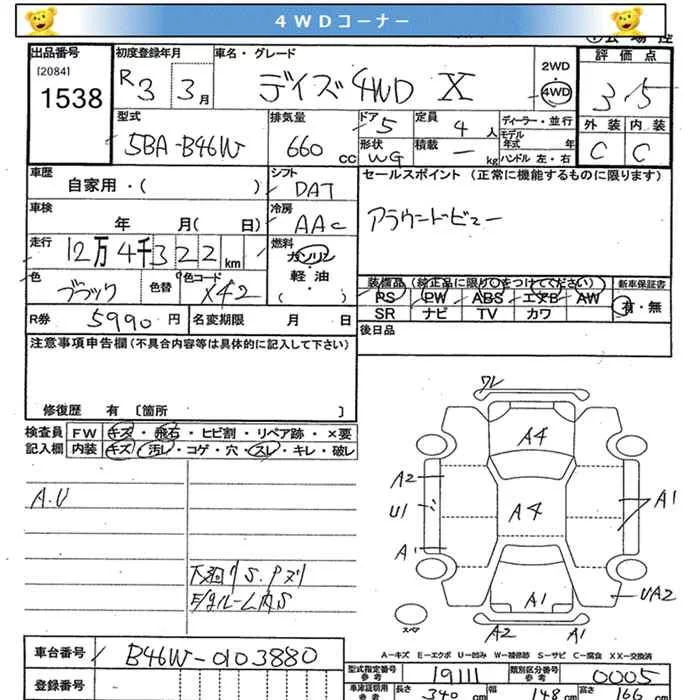 4WDコーナー
出品番号 初度登録年月 車名・グレード 評価点
[2084]
1538
R3 3月 デイズ 4WD X 2WD 4WD 3.5
型式 排気量 ドア 5 定員 4人 ディーラー・並行 外装 内装
5BA-B46W 660cc 形状 WG 積載 - kg モデル年式 年 C C
ハンドル 左・右
車歴 シフト セールスポイント (正常に機能するものに限ります)
自家用・( ) DAT
車検 冷房 アラウンドビュー
年 月(日) AAC
走行 燃料
12万4千322km ガソリン
色 色替 色コード 軽・油
ブラック X42 ( )
装備品 (純正品に限り○をつけてください) 新車保証書
PS PW ABS エアB AW 有・無
SR ナビ TV カワ
R券 5990円 名変期限 月 日 後日品
注意事項申告欄(不具合内容等は具体的に記入して下さい)
修復歴 有 〔箇所 〕
検査員 FW キズ・飛石・ヒビ割・リペア跡・×要
記入欄 内装 キズ・汚レ・コゲ・穴・スレ・キレ・破レ
A.U
下廻りS.Pズリ
E/gルーム内S
ワレ
A4
A2
U1
A4
A1
A1
A1
UA2
スペア
A2 A1
A-キズ E-エクボ U-凹み W-補修跡 S-サビ C-腐食 XX-交換済
車台番号 B46W-0103880
型式指定番号 参考 19111 類別区分番号 参考 0005
登録番号
車庫証明用 参考 長さ 340cm 幅 148cm 高さ 166cm